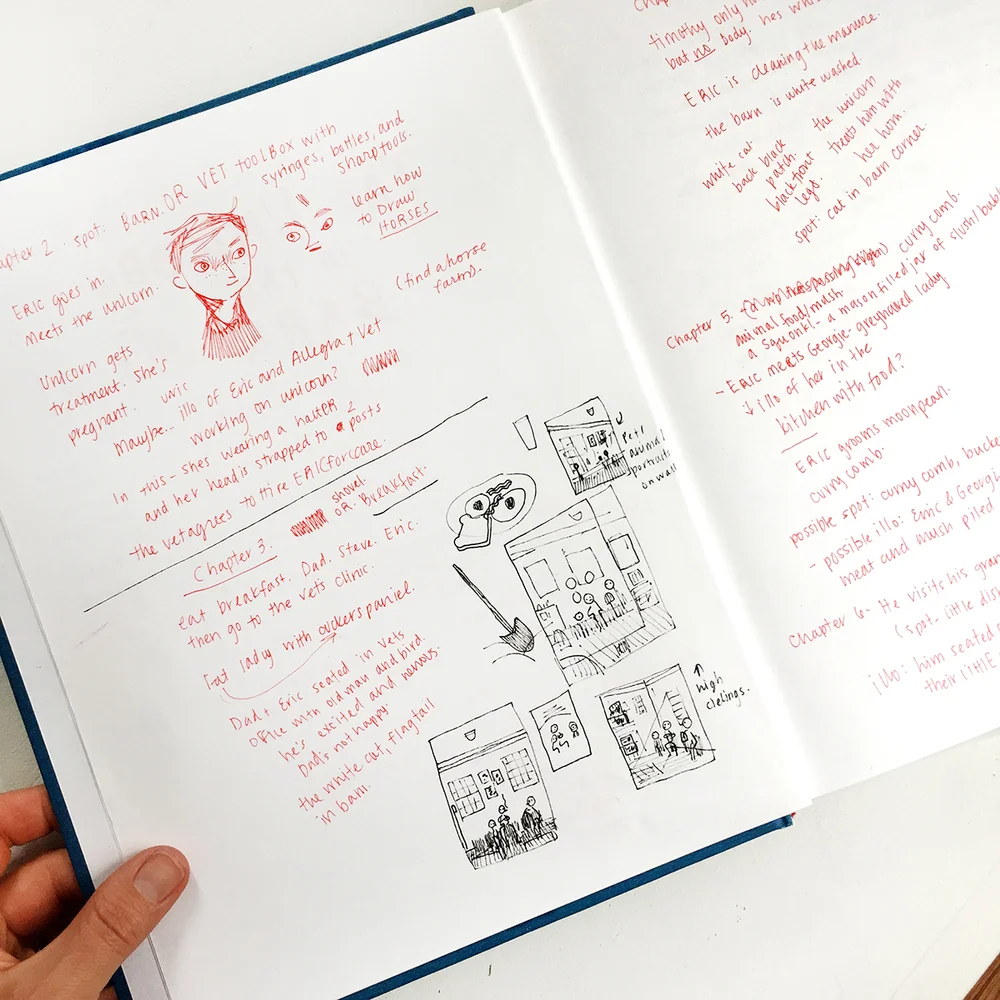 apter 2. spot: BARN. OR VET toolBox with
syringes, bottles, and
sharp tools.
learn how
to Draw
HORSES
(find a horse
farm).
ERIC goes in.
Meets the unicorn.
Unicorn gets
treatment. She's
pregnant.
Maybe... illo of Eric and Allegra + Vet
working on unicorn?
In this - shes wearing a halter
and her head is strapped to 2 posts
the vet agrees to Hire ERIC for care.
Chapter 3.
shovel
OR. Breakfast.
eat breakfast. Dad. Steve. Eric.
then go to the vets clinic.
Fat lady with cockers paniel.
Dad + Eric seated in vets
office with old man and bird.
he's excited and nervous.
Dad's not happy.
the white cat, flag tail
in barn.
Pet/
animal
portraits
on wall
↑
high
cielings.
Chap
timothy only
but no body. hes whi
ERIC is cleaning the manure.
the barn is white washed.
white cat
back black
patch.
black front
legs.
the unicorn
treats him with
her horn.
spot: cat in barn corner.
Chapter 5.
curry comb.
animal food/mush
a Squonk - a mason filled jar of slush/bubb
- Eric meets Georgie - greyhaired lady
↓ illo of her in the
kitchen with food?
ERIC grooms moonpearl.
curry comb.
possible spot: curry comb, bucke
- possible illo: Eric & Georgi
meat and mush piled
Chapter 6 - He visits his gran
(spot - little dis
illo: him seated
their little